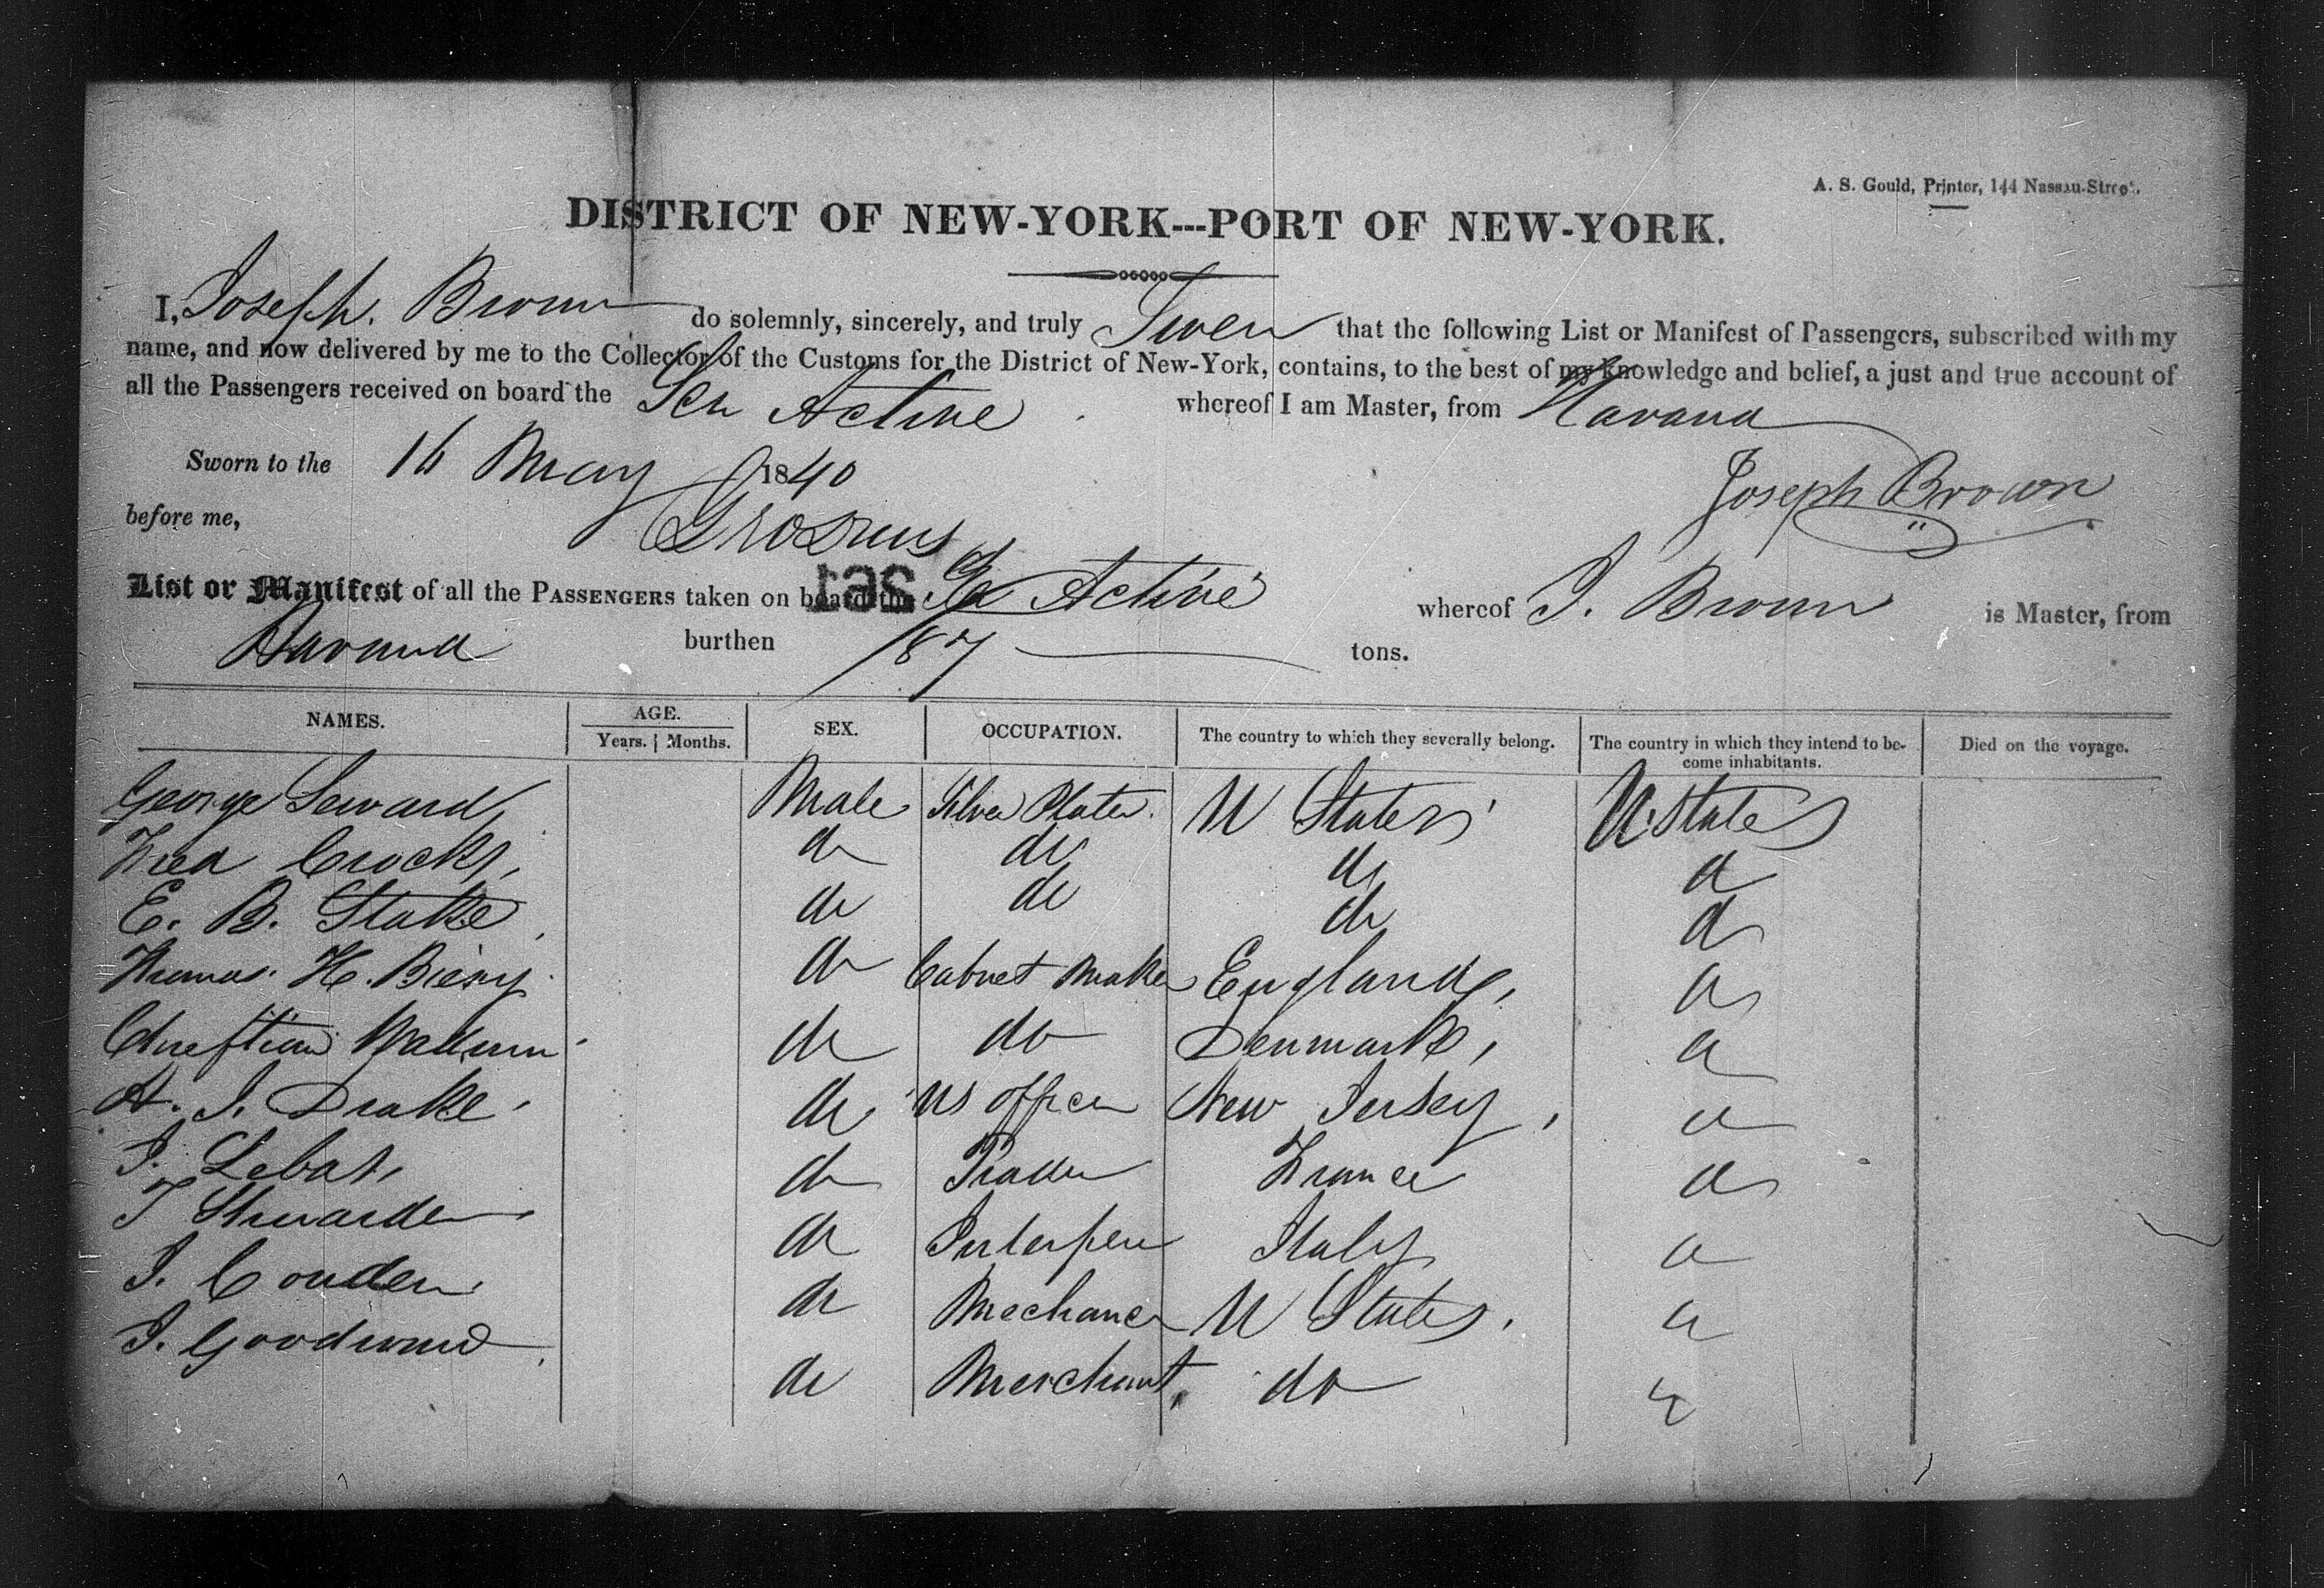 A. S. Gould, Printer, 144 Nassau-Street.
DISTRICT OF NEW-YORK---PORT OF NEW-YORK.
I, Joseph. Brown do solemnly, sincerely, and truly Swear that the following List or Manifest of Passengers, subscribed with my
name, and now delivered by me to the Collector of the Customs for the District of New-York, contains, to the best of my knowledge and belief, a just and true account of
all the Passengers received on board the Sch Active whereof I am Master, from Havana
Sworn to the 16 May 1840
Joseph Brown
before me,
List or Manifest of all the PASSENGERS taken on board the Active whereof J. Brown is Master, from
Havana burthen 187 tons.
NAMES. AGE. SEX. OCCUPATION. The country to which they severally belong. The country in which they intend to be-come inhabitants. Died on the voyage.
Years. Months.
George Seward Male Silver Plater. U States U. States
Fred Crocks, do do do do
E. B. Stake, do do do do
Thomas. H. Cabinet Maker England, do
Christian do do Denmark, do
A. J. Drake do US officer New Jersey, do
J. Lebat, do Trader France do
T do Italy do
J. Couden do Mechanic U States. do
J. do Merchant, do do